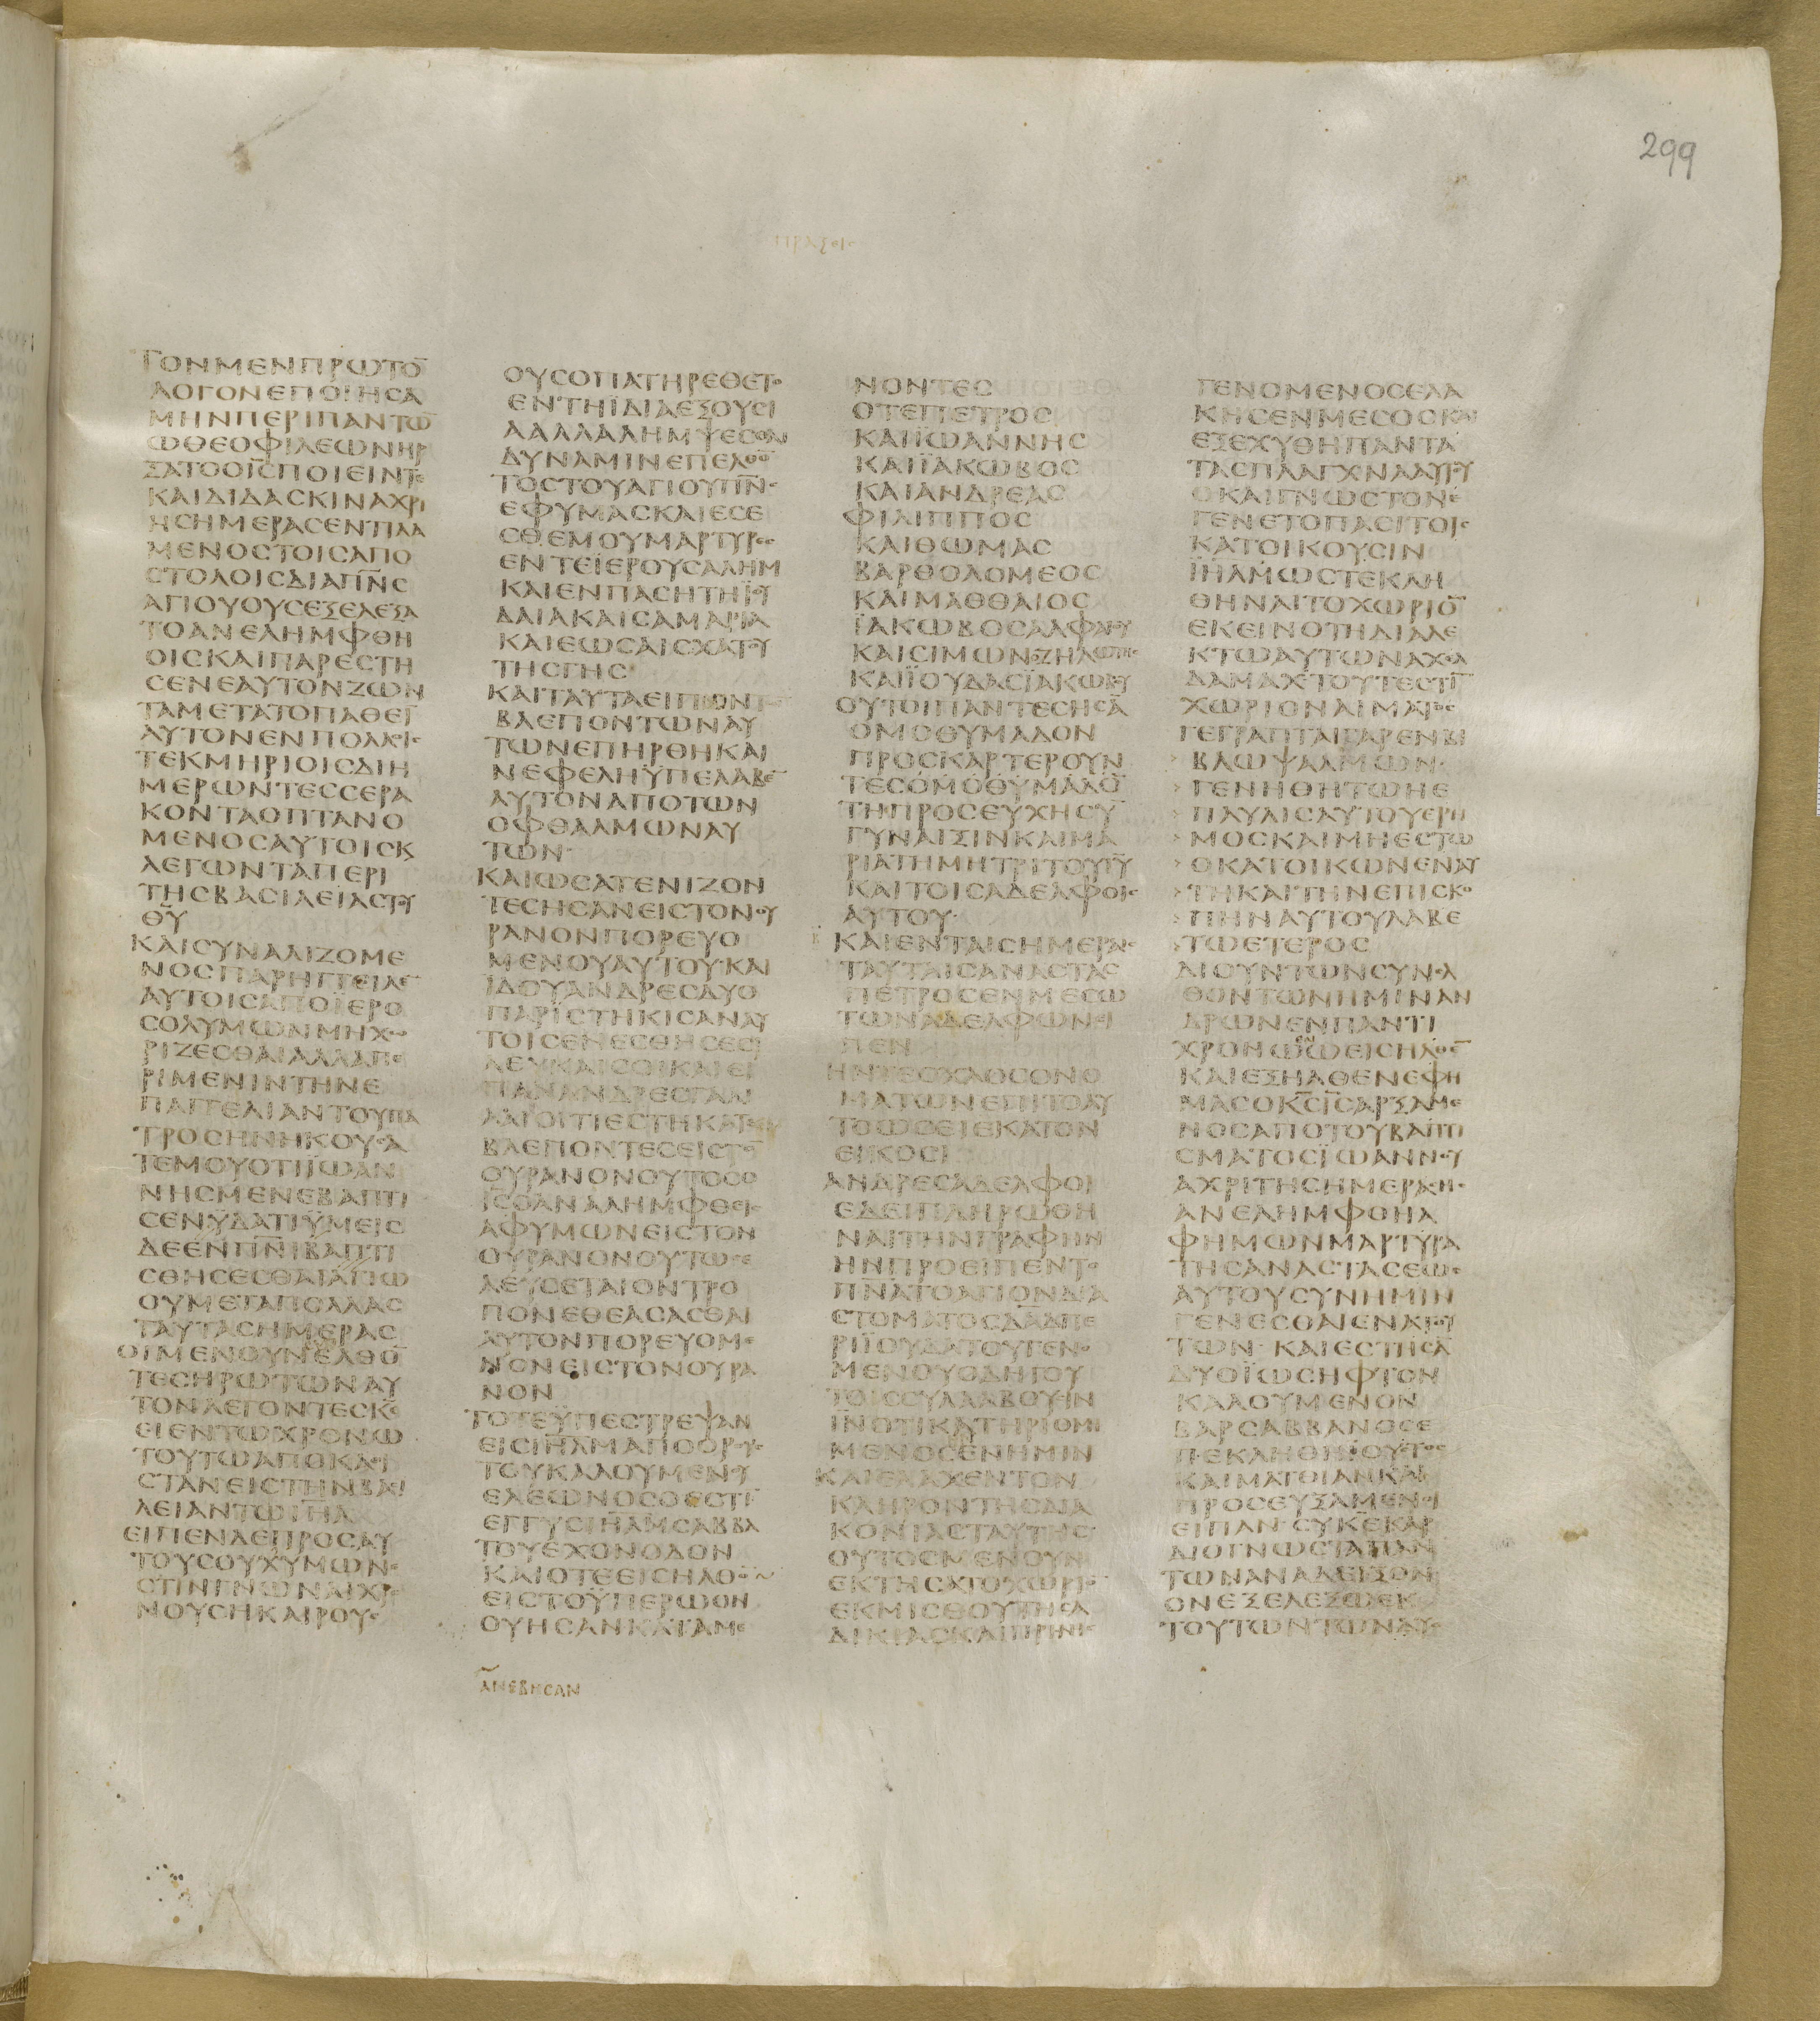 299
ΠΡΑΞΕΙϹ
ΤΟΝΜΕΝΠΡΩΤΟ̅
ΛΟΓΟΝΕΠΟΙΗϹΑ
ΜΗΝΠΕΡΙΠΑΝΤΩ̅
ΩΘΕΟΦΙΛΕΩΝΗΡ
ΞΑΤΟΟΙ̅Ϲ̅ΠΟΙΕΙΝΤΕ
ΚΑΙΔΙΔΑϹΚΙΝΑΧΡΙ
ΗϹΗΜΕΡΑϹΕΝΤΙΛΑ
ΜΕΝΟϹΤΟΙϹΑΠΟ
ϹΤΟΛΟΙϹΔΙΑΠ̅Ν̅Ϲ̅
ΑΓΙΟΥΟΥϹΕΞΕΛΕΞΑ
ΤΟΑΝΕΛΗΜΦΘΗ
ΟΙϹΚΑΙΠΑΡΕϹΤΗ
ϹΕΝΕΑΥΤΟΝΖΩΝ
ΤΑΜΕΤΑΤΟΠΑΘΕΙ̅
ΑΥΤΟΝΕΝΠΟΛΛΟΙϹ
ΤΕΚΜΗΡΙΟΙϹΔΙΗ
ΜΕΡΩΝΤΕϹϹΕΡΑ
ΚΟΝΤΑΟΠΤΑΝΟ
ΜΕΝΟϹΑΥΤΟΙϹΚ
ΛΕΓΩΝΤΑΠΕΡΙ
ΤΗϹΒΑϹΙΛΕΙΑϹΤΟΥ
Θ̅Υ̅
ΚΑΙϹΥΝΑΛΙΖΟΜΕ
ΝΟϹΠΑΡΗΓΓΕΙΛΕ̅
ΑΥΤΟΙϹΑΠΟΪΕΡΟ
ϹΟΛΥΜΩΝΜΗΧΩ
ΡΙΖΕϹΘΑΙΑΛΛΑΠΕ
ΡΙΜΕΝΙΝΤΗΝΕ
ΠΑΓΓΕΛΙΑΝΤΟΥΠΑ
ΤΡΟϹΗΝΗΚΟΥϹΑ
ΤΕΜΟΥΟΤΙΪΩΑΝ
ΝΗϹΜΕΝΕΒΑΠΤΙ
ϹΕΝΫΔΑΤΙΫΜΕΙϹ
ΔΕΕΝΠ̅Ν̅Ι̅ΒΑΠΤΙ
ϹΘΗϹΕϹΘΑΙΑΓΙΩ
ΟΥΜΕΤΑΠΟΛΛΑϹ
ΤΑΥΤΑϹΗΜΕΡΑϹ
ΟΙΜΕΝΟΥΝΕΛΘΟ̅
ΤΕϹΗΡΩΤΩΝΑΥ
ΤΟΝΛΕΓΟΝΤΕϹΚΕ
ΕΙΕΝΤΩΧΡΟΝΩ
ΤΟΥΤΩΑΠΟΚΑΘΙ
ϹΤΑΝΕΙϹΤΗΝΒΑϹΙ
ΛΕΙΑΝΤΩΙ̅Η̅Λ̅
ΕΙΠΕΝΔΕΠΡΟϹΑΥ
ΤΟΥϹΟΥΧΫΜΩΝΕ
ϹΤΙΝΓΝΩΝΑΙΧΡΟ
ΝΟΥϹΗΚΑΙΡΟΥϹ
ΟΥϹΟΠΑΤΗΡΕΘΕΤΟ
ΕΝΤΗΪΔΙΑΕΞΟΥϹΙ
ΑΑΛΛΑΛΗΜΨΕϹΘΑΙ
ΔΥΝΑΜΙΝΕΠΕΛΘΟ̅
ΤΟϹΤΟΥΑΓΙΟΥΠ̅Ν̅Ϲ̅
ΕΦΥΜΑϹΚΑΙΕϹΕ
ϹΘΕΜΟΥΜΑΡΤΥΡΕϹ
ΕΝΤΕΪΕΡΟΥϹΑΛΗΜ
ΚΑΙΕΝΠΑϹΗΤΗΪΟΥ
ΔΑΙΑΚΑΙϹΑΜΑΡΙΑ
ΚΑΙΕΩϹΑΙϹΧΑΤΟΥ
ΤΗϹΓΗϹ
ΚΑΙΤΑΥΤΑΕΙΠΟΝΤ
ΒΛΕΠΟΝΤΩΝΑΥ
ΤΩΝΕΠΗΡΘΗΚΑΙ
ΝΕΦΕΛΗΫΠΕΛΑΒΕ̅
ΑΥΤΟΝΑΠΟΤΩΝ
ΟΦΘΑΛΜΩΝΑΥ
ΤΩΝ
ΚΑΙΩϹΑΤΕΝΙΖΟΝ
ΤΕϹΗϹΑΝΕΙϹΤΟΝΟΥ
ΡΑΝΟΝΠΟΡΕΥΟ
ΜΕΝΟΥΑΥΤΟΥ·ΚΑΙ
ΪΔΟΥΑΝΔΡΕϹΔΥΟ
ΠΑΡΙϹΤΗΚΙϹΑΝΑΥ
ΤΟΙϹΕΝΕϹΘΗϹΕϹΙ
ΛΕΥΚΑΙϹΟΙΚΑΙΕΙ
ΠΑΝΑΝΔΡΕϹΓΑΛΙ
ΛΑΙΟΙΤΙΕϹΤΗΚΑΤΑΙ
ΒΛΕΠΟΝΤΕϹΕΙϹΤΟ̅
ΟΥΡΑΝΟΝΟΥΤΟϹΟ
Ι̅Ϲ̅ΟΑΝΑΛΗΜΦΘΕΙϹ
ΑΦΥΜΩΝΕΙϹΤΟΝ
ΟΥΡΑΝΟΝΟΥΤΩϹΕ
ΛΕΥϹΕΤΑΙΟΝΤΡΟ
ΠΟΝΕΘΕΑϹΑϹΘΑΙ
ΑΥΤΟΝΠΟΡΕΥΟΜΕ
ΝΟΝΕΙϹΤΟΝΟΥΡΑ
ΝΟΝ
ΤΟΤΕΫΠΕϹΤΡΕΨΑΝ
ΕΙϹΙ̅Η̅Λ̅Μ̅ΑΠΟΟΡΟΥϹ
ΤΟΥΚΑΛΟΥΜΕΝΟΥ
ΕΛΕΩΝΟϹΟΕϹΤΙ̅
ΕΓΓΥϹΙ̅Η̅Λ̅Μ̅ϹΑΒΒΑ
ΤΟΥΕΧΟΝΟΔΟΝ
ΚΑΙΟΤΕΕΙϹΗΛΘΟ̅
ΕΙϹΤΟΫΠΕΡΩΟΝ
ΟΥΗϹΑΝΚΑΤΑΜΕ
ΑΝΕΒΗϹΑΝ
ΝΟΝΤΕϹ
ΟΤΕΠΕΤΡΟϹ
ΚΑΙΪΩΑΝΝΗϹ
ΚΑΙΪΑΚΩΒΟϹ
ΚΑΙΑΝΔΡΕΑϹ
ΦΙΛΙΠΠΟϹ
ΚΑΙΘΩΜΑϹ
ΒΑΡΘΟΛΟΜΕΟϹ
ΚΑΙΜΑΘΘΑΙΟϹ
ΪΑΚΩΒΟϹΑΛΦΑΙΟΥ
ΚΑΙϹΙΜΩΝΟΖΗΛΩΤΗϹ
ΚΑΙΪΟΥΔΑϹΪΑΚΩΒΟΥ
ΟΥΤΟΙΠΑΝΤΕϹΗϹΑ̅
ΟΜΟΘΥΜΑΔΟΝ
ΠΡΟϹΚΑΡΤΕΡΟΥΝ
ΤΕϹΟΜΟΘΥΜΑΔΟ̅
ΤΗΠΡΟϹΕΥΧΗϹΥ̅
ΓΥΝΑΙΞΙΝΚΑΙΜΑ
ΡΙΑΤΗΜΗΤΡΙΤΟΥΙ̅Υ̅
ΚΑΙΤΟΙϹΑΔΕΛΦΟΙϹ
ΑΥΤΟΥ·
ΚΑΙΕΝΤΑΙϹΗΜΕΡΑΙϹ
ΤΑΥΤΑΙϹΑΝΑϹΤΑϹ
ΠΕΤΡΟϹΕΝΜΕϹΩ
ΤΩΝΑΔΕΛΦΩΝΕΙ
ΠΕΝ
ΗΝΤΕΟΧΛΟϹΟΝΟ
ΜΑΤΩΝΕΠΙΤΟΑΥ
ΤΟΩϹΕΙΕΚΑΤΟΝ
ΕΙΚΟϹΙ
ΑΝΔΡΕϹΑΔΕΛΦΟΙ
ΕΔΕΙΠΛΗΡΩΘΗ
ΝΑΙΤΗΝΓΡΑΦΗΝ
ΗΝΠΡΟΕΙΠΕΝΤΟ
Π̅Ν̅Α̅ΤΟΑΓΙΟΝΔΙΑ
ϹΤΟΜΑΤΟϹΔ̅Α̅Δ̅ΠΕ
ΡΙΪΟΥΔΑΤΟΥΓΕΝΟ
ΜΕΝΟΥΟΔΗΓΟΥ
ΤΟΙϹϹΥΛΛΑΒΟΥϹΙΝ
Ι̅Ν̅ΟΤΙΚΑΤΗΡΙΘΜΗ
ΜΕΝΟϹΕΝΗΜΙΝ
ΚΑΙΕΛΑΧΕΝΤΟΝ
ΚΛΗΡΟΝΤΗϹΔΙΑ
ΚΟΝΙΑϹΤΑΥΤΗϹ
ΟΥΤΟϹΜΕΝΟΥΝ
ΕΚΤΗϹΑΤΟΧΩΡΙΟ̅
ΕΚΜΙϹΘΟΥΤΗϹΑ
ΔΙΚΙΑϹΚΑΙΠΡΗΝΗϹ
ΓΕΝΟΜΕΝΟϹΕΛΑ
ΚΗϹΕΝΜΕϹΟϹΚΑΙ
ΕΞΕΧΥΘΗΠΑΝΤΑ
ΤΑϹΠΛΑΓΧΝΑΑΥΤΟΥ
ΟΚΑΙΓΝΩϹΤΟΝΕ
ΓΕΝΕΤΟΠΑϹΙΤΟΙϹ
ΚΑΤΟΙΚΟΥϹΙΝ
Ι̅Η̅Λ̅Μ̅ΩϹΤΕΚΛΗ
ΘΗΝΑΙΤΟΧΩΡΙΟ̅
ΕΚΕΙΝΟΤΗΔΙΑΛΕ
ΚΤΩΑΥΤΩΝΑΧΕΛ
ΔΑΜΑΧΤΟΥΤΕϹΤΙ̅
ΧΩΡΙΟΝΑΙΜΑΤΟϹ
ΓΕΓΡΑΠΤΑΙΓΑΡΕΝΒΙ
> ΒΛΩΨΑΛΜΩΝ·
> ΓΕΝΗΘΗΤΩΗΕ
> ΠΑΥΛΙϹΑΥΤΟΥΕΡΗ
> ΜΟϹΚΑΙΜΗΕϹΤΩ
> ΟΚΑΤΟΙΚΩΝΕΝΑΥ
> ΤΗΚΑΙΤΗΝΕΠΙϹΚΟ
> ΠΗΝΑΥΤΟΥΛΑΒΕ
> ΤΩΕΤΕΡΟϹ
ΔΙΟΥΝΤΩΝϹΥΝΕΛ
ΘΟΝΤΩΝΗΜΙΝΑΝ
ΔΡΩΝΕΝΠΑΝΤΙ
ΧΡΟΝΩΩΕΙϹΗΛΘΕ̅
ΚΑΙΕΞΗΛΘΕΝΕΦΗ
ΜΑϹΟΚ̅Ϲ̅Ι̅Ϲ̅ΑΡΞΑΜΕ
ΝΟϹΑΠΟΤΟΥΒΑΠΤΙ
ϹΜΑΤΟϹΪΩΑΝΝΟΥ
ΑΧΡΙΤΗϹΗΜΕΡΑϹΗϹ
ΑΝΕΛΗΜΦΘΗΑ
ΦΗΜΩΝΜΑΡΤΥΡΑ
ΤΗϹΑΝΑϹΤΑϹΕΩϹ
ΑΥΤΟΥϹΥΝΗΜΙΝ
ΓΕΝΕϹΘΑΙΕΝΑΤΟΥ
ΤΩΝ· ΚΑΙΕϹΤΗϹΑ̅
ΔΥΟΪΩϹΗΦΤΟΝ
ΚΑΛΟΥΜΕΝΟΝ
ΒΑΡϹΑΒΒΑΝΟϹΕ
ΠΕΚΛΗΘΗΪΟΥϹΤΟϹ
ΚΑΙΜΑΤΘΙΑΝΚΑΙ
ΠΡΟϹΕΥΞΑΜΕΝΟΙ
ΕΙΠΑΝ·ϹΥΚ̅Ε̅ΚΑΡ
ΔΙΟΓΝΩϹΤΑΠΑΝ
ΤΩΝΑΝΑΔΕΙΞΟΝ
ΟΝΕΞΕΛΕΞΩΕΚ
ΤΟΥΤΩΝΤΩΝΔΥΟ